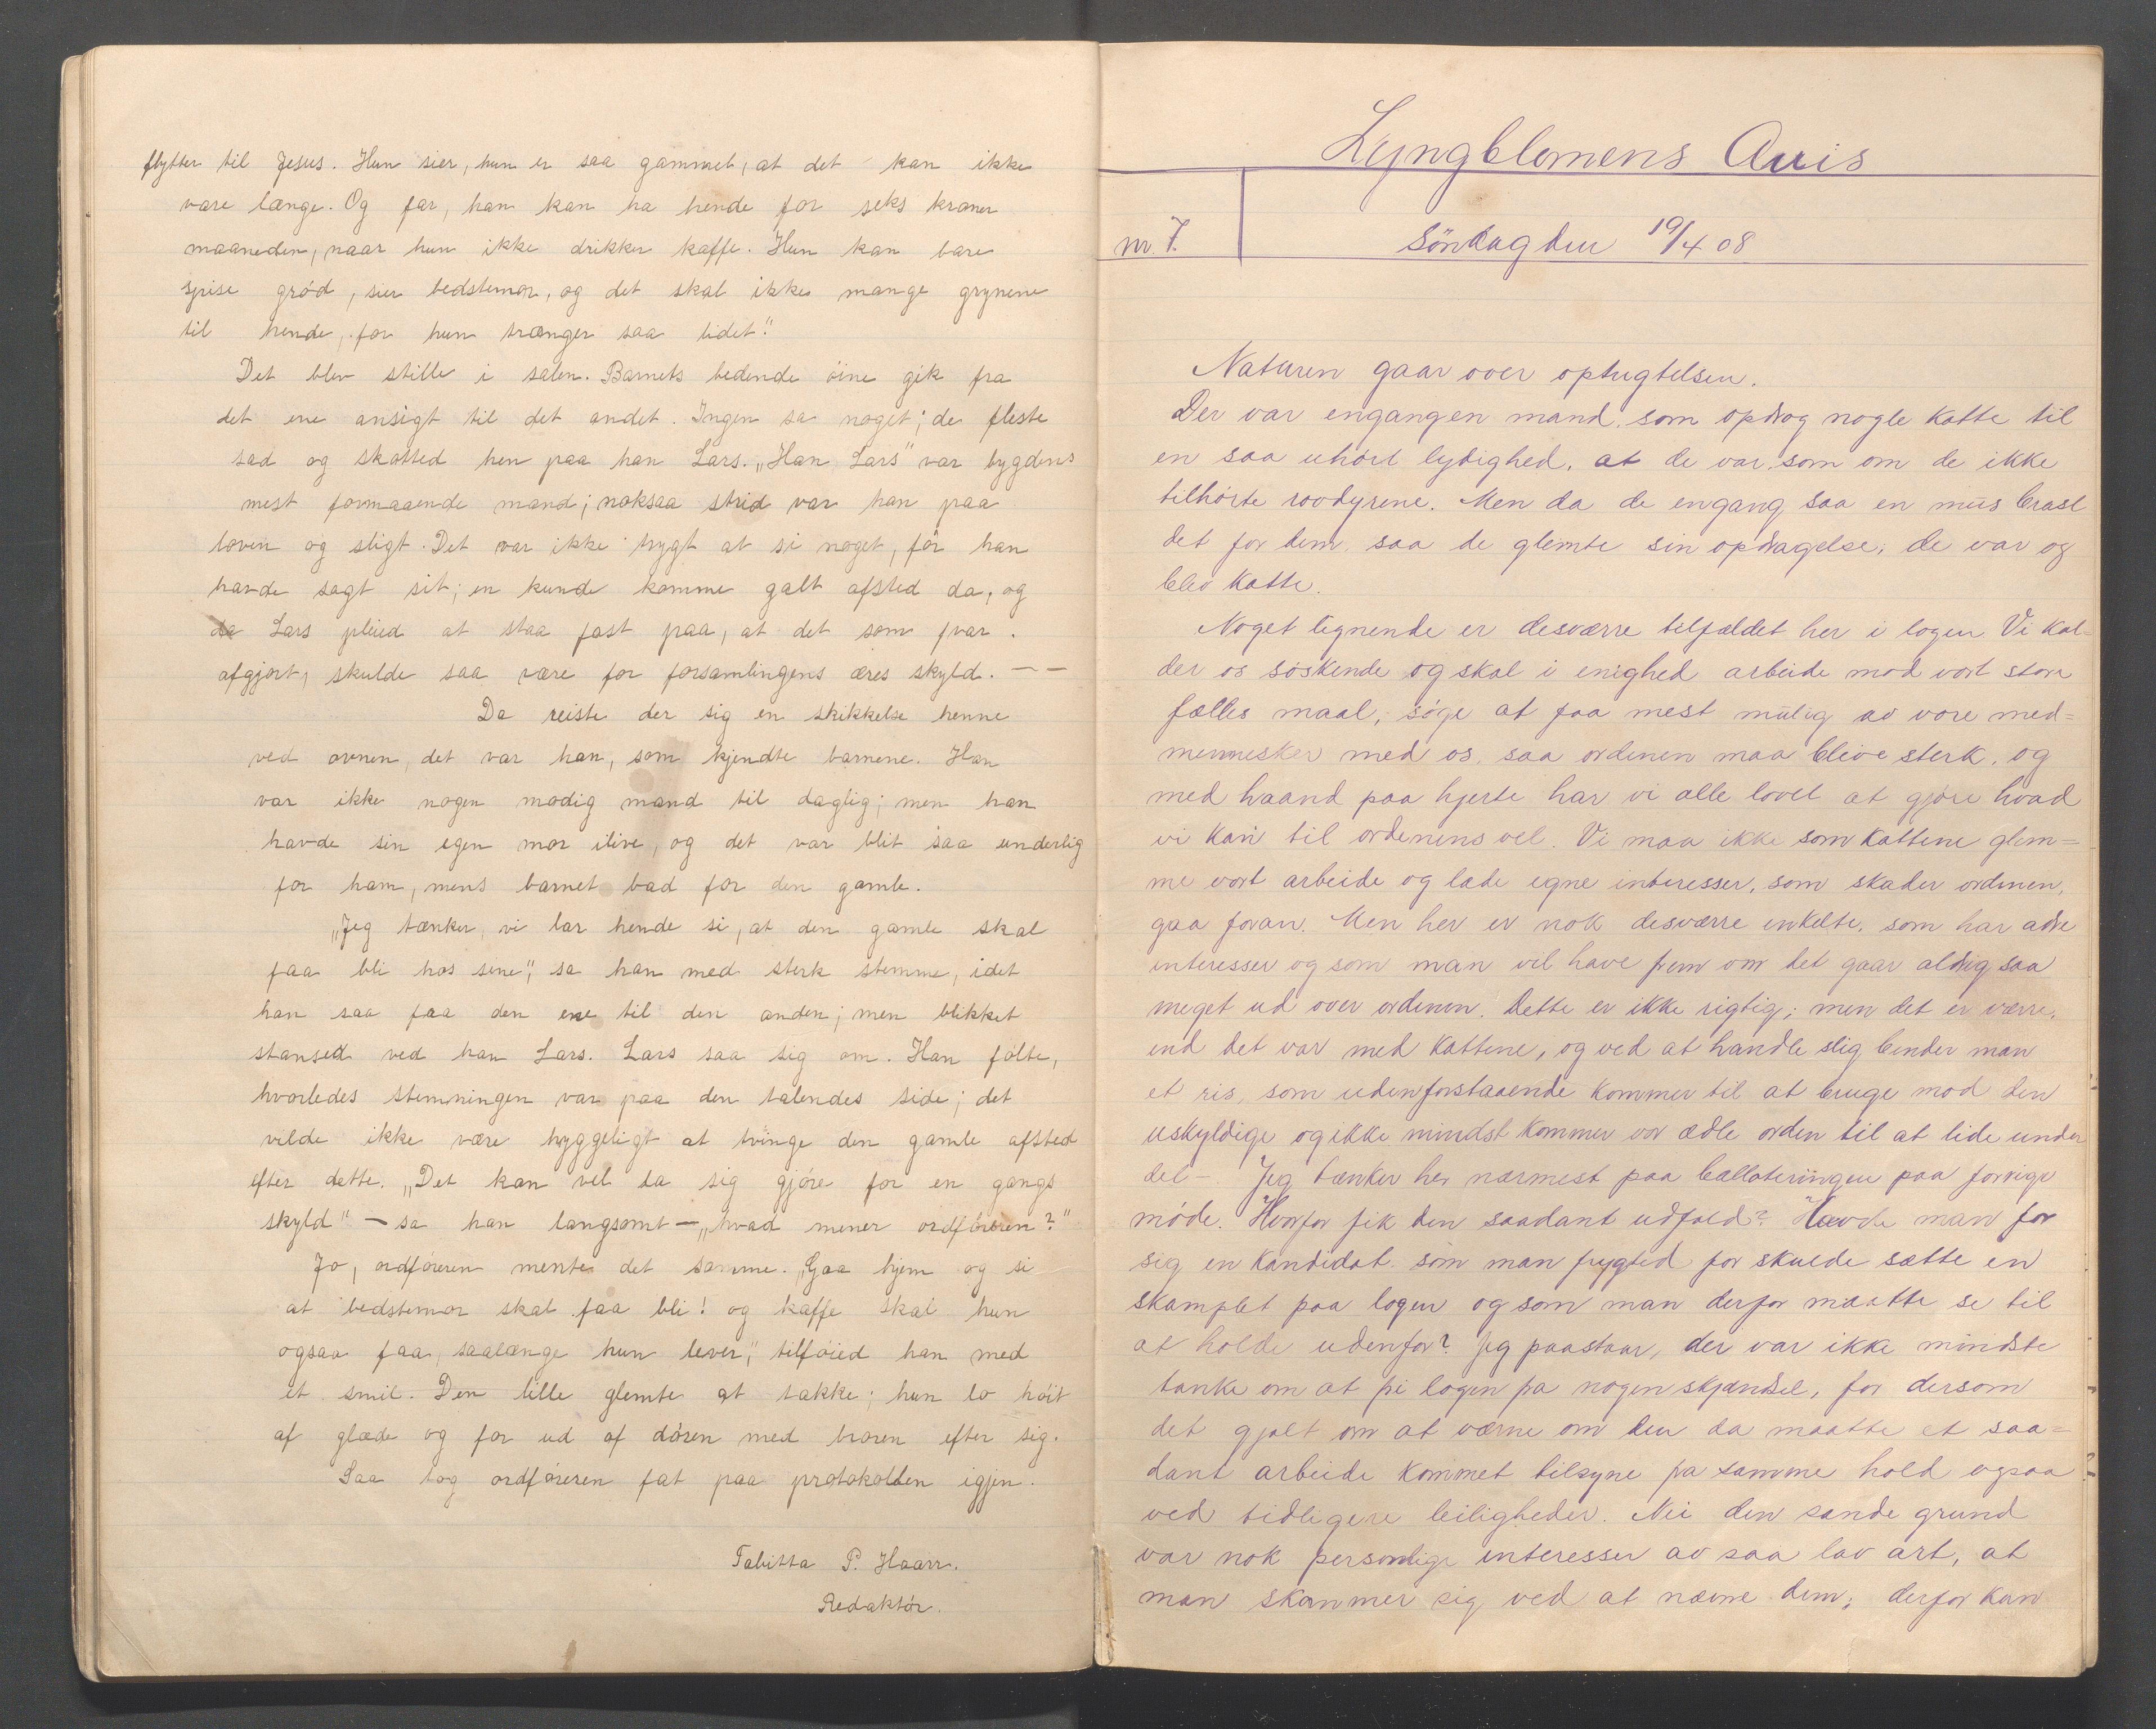 flytter til Jesus. Hun sier, hun er saa gammel, at det kan ikke
vare længe. Og far, han kan ha hende for seks kroner
maaneden, naar hun ikke drikker kaffe. Hun kan bare
spise grød, sier bedstemor, og det skal ikke mange grynene
til hende, for hun trænger saa lidet."
Det blev stille i salen. Barnets bedende øine gik fra
det ene ansigt til det andet. Ingen sa noget; de fleste
sad og skotted hen paa han Lars. „Han Lars" var bygdens
mest formaaende mand; noksaa strid var han paa
loven og sligt. Det var ikke trygt at si noget, før han
havde sagt sit; en kunde komme galt afsted da, og
da Lars pleied at staa fast paa, at det som var
afgjort, skulde saa være for forsamlingens æres skyld. — —
Da reiste der sig en skikkelse henne
ved ovnen, det var han, som kjendte barnene. Han
var ikke nogen modig mand til daglig; men han
havde sin egen mor ilive, og det var blit saa underlig
for ham, mens barnet bad for den gamle.
„Jeg tænker, vi lar hende si, at den gamle skal
faa bli hos sine", sa han med sterk stemme, idet
han saa fra den ene til den anden; men blikket
stansed ved han Lars. Lars saa sig om. Han følte,
hvorledes stemningen var paa den talendes side; det
vilde ikke være hyggeligt at tvinge den gamle afsted
efter dette. „Det kan vel la sig gjøre for en gangs
skyld" — sa han langsomt — „hvad mener ordføreren?"
Jo, ordføreren mente det samme. „Gaa hjem og si
at bedstemor skal faa bli! og kaffe skal hun
ogsaa faa, saalænge hun lever," tilføied han med
et smil. Den lille glemte at takke; hun lo høit
af glæde og for ud af døren med broren efter sig.
Saa tog ordføreren fat paa protokollen igjen.
Tabitta P. Haarr.
Redaktør.
Lyngblomens Avis
nr. 7.
Søndag den 19/4 08
Naturen gaar over optugtelsen.
Der var engang en mand, som opdrog nogle katte til
en saa uhørt lydighed, at de var som om de ikke
tilhørte rovdyrene. Men da de engang saa en mus brast
det for dem, saa de glemte sin opdragelse, de var og
blev katte.
Noget lignende er desværre tilfældet her i logen. Vi kal=
der os søskende og skal i enighed arbeide mod vort store
fælles maal, søge at faa mest mulig av vore med=
mennesker med os, saa ordenen maa blive sterk, og
med haand paa hjerte har vi alle lovet at gjøre hvad
vi kan til ordenens vel. Vi maa ikke som kattene glem=
me vort arbeide og lade egne interesser, som skader ordenen,
gaa foran. Men her er nok desværre enkelte, som har adre
interesser og som man vil have frem om det gaar aldrig saa
meget ud over ordenen. Dette er ikke rigtig; men det er værre,
end det var med kattene, og ved at handle slig binder man
et ris, som udenforstaaende kommer til at bruge mod den
uskyldige og ikke mindst kommer vor ædle orden til at lide under
det — Jeg tænker her nærmest paa balloteringen paa forrige
møde. Hvorfor fik den saadant udfald? Havde man for
sig en kandidat som man frygted for skulde sætte en
skamplet paa logen og som man derfor maatte se til
at holde udenfor? Jeg paastaar, der var ikke mindste
tanke om at fri logen fra nogen skjændsel, for dersom
det gjalt om at værne om den da maatte et saa=
dant arbeide kommet tilsyne fra samme hold ogsaa
ved tidligere leiligheder. Nei den sande grund
var nok personlige interesser av saa lav art, at
man skammer sig ved at nævne dem; derfor kan